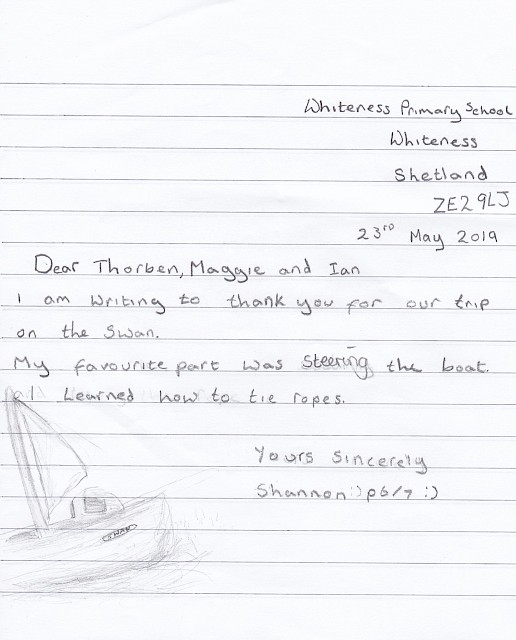 Whiteness Primary School
Whiteness
Shetland
ZE2 9LJ
23rd May 2019
Dear Thorben, Maggie and Ian
I am writing to thank you for our trip
on the Swan.
My favourite part was steering the boat.
I Learned how to tie ropes.
Yours Sincerely
Shannon :) p6/7 :)
SWAN